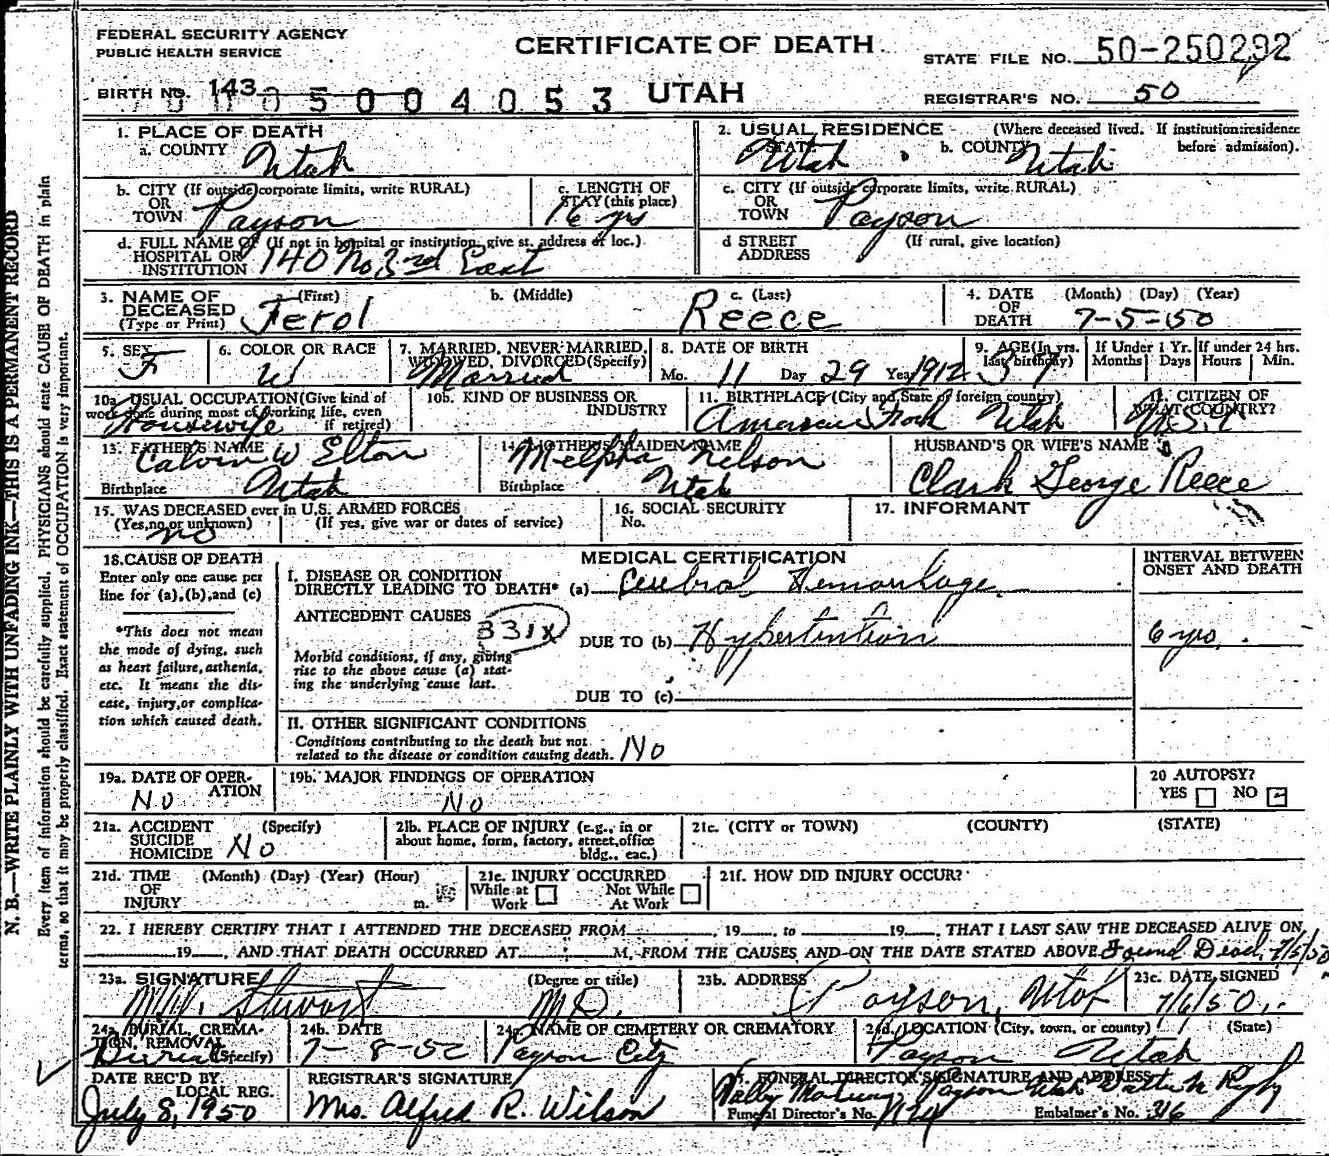 FEDERAL SECURITY AGENCY
PUBLIC HEALTH SERVICE
CERTIFICATE OF DEATH
STATE FILE NO. 50-250292
BIRTH NO. 143
5004053
UTAH
REGISTRAR'S NO. 50
1. PLACE OF DEATH
a. COUNTY Utah
2. USUAL RESIDENCE (Where deceased lived. If institution:residence before admission).
a. STATE Utah b. COUNTY Utah
b. CITY (If outside corporate limits, write RURAL) OR TOWN Payson
c. LENGTH OF STAY (this place) 16 yrs
c. CITY (If outside corporate limits, write RURAL) OR TOWN Payson
d. FULL NAME OF (If not in hospital or institution, give st. address or loc.) HOSPITAL OR INSTITUTION 140 No. 3rd East
d STREET ADDRESS (If rural, give location)
3. NAME OF DECEASED (Type or Print)
a. (First) Ferol
b. (Middle)
c. (Last) Reece
4. DATE OF DEATH (Month) (Day) (Year) 7-5-50
5. SEX F
6. COLOR OR RACE W
7. MARRIED, NEVER MARRIED, WIDOWED, DIVORCED (Specify) Married
8. DATE OF BIRTH Mo. 11 Day 29 Year 1912
9. AGE (In yrs. last birthday) 37
If Under 1 Yr. Months Days
If under 24 hrs. Hours Min.
10a. USUAL OCCUPATION (Give kind of work done during most of working life, even if retired) Housewife
10b. KIND OF BUSINESS OR INDUSTRY
11. BIRTHPLACE (City and State of foreign country) American Fork Utah
12. CITIZEN OF WHAT COUNTRY? U.S.A.
13. FATHER'S NAME Calvin W Elton
Birthplace Utah
14. MOTHER'S MAIDEN NAME Melpha Nelson
Birthplace Utah
HUSBAND'S OR WIFE'S NAME Clark George Reece
15. WAS DECEASED ever in U.S. ARMED FORCES (Yes, no or unknown) (If yes, give war or dates of service) no
16. SOCIAL SECURITY No.
17. INFORMANT
18. CAUSE OF DEATH
Enter only one cause per line for (a), (b), and (c)
*This does not mean the mode of dying, such as heart failure, asthenia, etc. It means the disease, injury, or complication which caused death.
MEDICAL CERTIFICATION
INTERVAL BETWEEN ONSET AND DEATH
I. DISEASE OR CONDITION DIRECTLY LEADING TO DEATH* (a) Cerebral Hemorrhage
ANTECEDENT CAUSES 331X
Morbid conditions, if any, giving rise to the above cause (a) stating the underlying cause last.
DUE TO (b) Hypertention 6 yrs.
DUE TO (c)
II. OTHER SIGNIFICANT CONDITIONS
Conditions contributing to the death but not related to the disease or condition causing death. No
19a. DATE OF OPERATION No
19b. MAJOR FINDINGS OF OPERATION No
20 AUTOPSY? YES NO
21a. ACCIDENT SUICIDE HOMICIDE (Specify) No
21b. PLACE OF INJURY (e.g., in or about home, form, factory, street, office bldg., eac.)
21c. (CITY or TOWN) (COUNTY) (STATE)
21d. TIME OF INJURY (Month) (Day) (Year) (Hour) m.
21e. INJURY OCCURRED While at Work Not While At Work
21f. HOW DID INJURY OCCUR?
22. I HEREBY CERTIFY THAT I ATTENDED THE DECEASED FROM 19 , to 19 , THAT I LAST SAW THE DECEASED ALIVE ON
19 , AND THAT DEATH OCCURRED AT M, FROM THE CAUSES AND ON THE DATE STATED ABOVE. Found Dead, 7/5/50
23a. SIGNATURE Stewart (Degree or title) M.D.
23b. ADDRESS Payson, Utah
23c. DATE SIGNED 7/6/50
24a. BURIAL, CREMATION, REMOVAL (Specify) Burial
24b. DATE 7-8-50
24c. NAME OF CEMETERY OR CREMATORY Payson City
24d. LOCATION (City, town, or county) (State) Payson Utah
DATE REC'D BY LOCAL REG. July 8, 1950
REGISTRAR'S SIGNATURE Mrs. Alfred R. Wilson
25. FUNERAL DIRECTOR'S SIGNATURE AND ADDRESS Payson Utah
Funeral Director's No. Embalmer's No. 316
N. B.—WRITE PLAINLY WITH UNFADING INK—THIS IS A PERMANENT RECORD
Every item of information should be carefully supplied. PHYSICIANS should state CAUSE OF DEATH in plain
terms, so that it may be properly classified. Exact statement of OCCUPATION is very important.